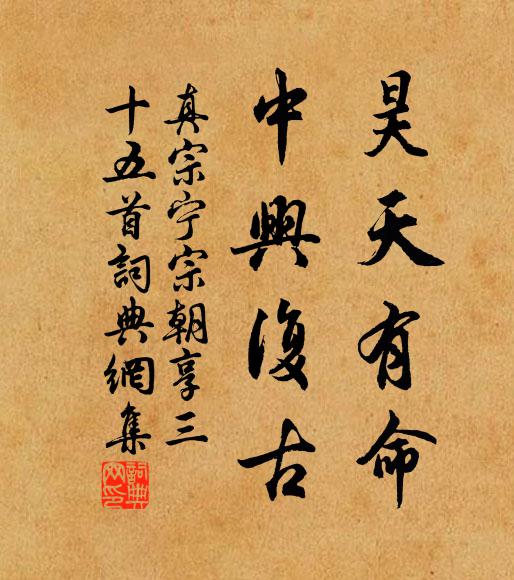 昊天有命
中興復古
真宗宁宗朝享三
十五首詞典網集
詞典網印